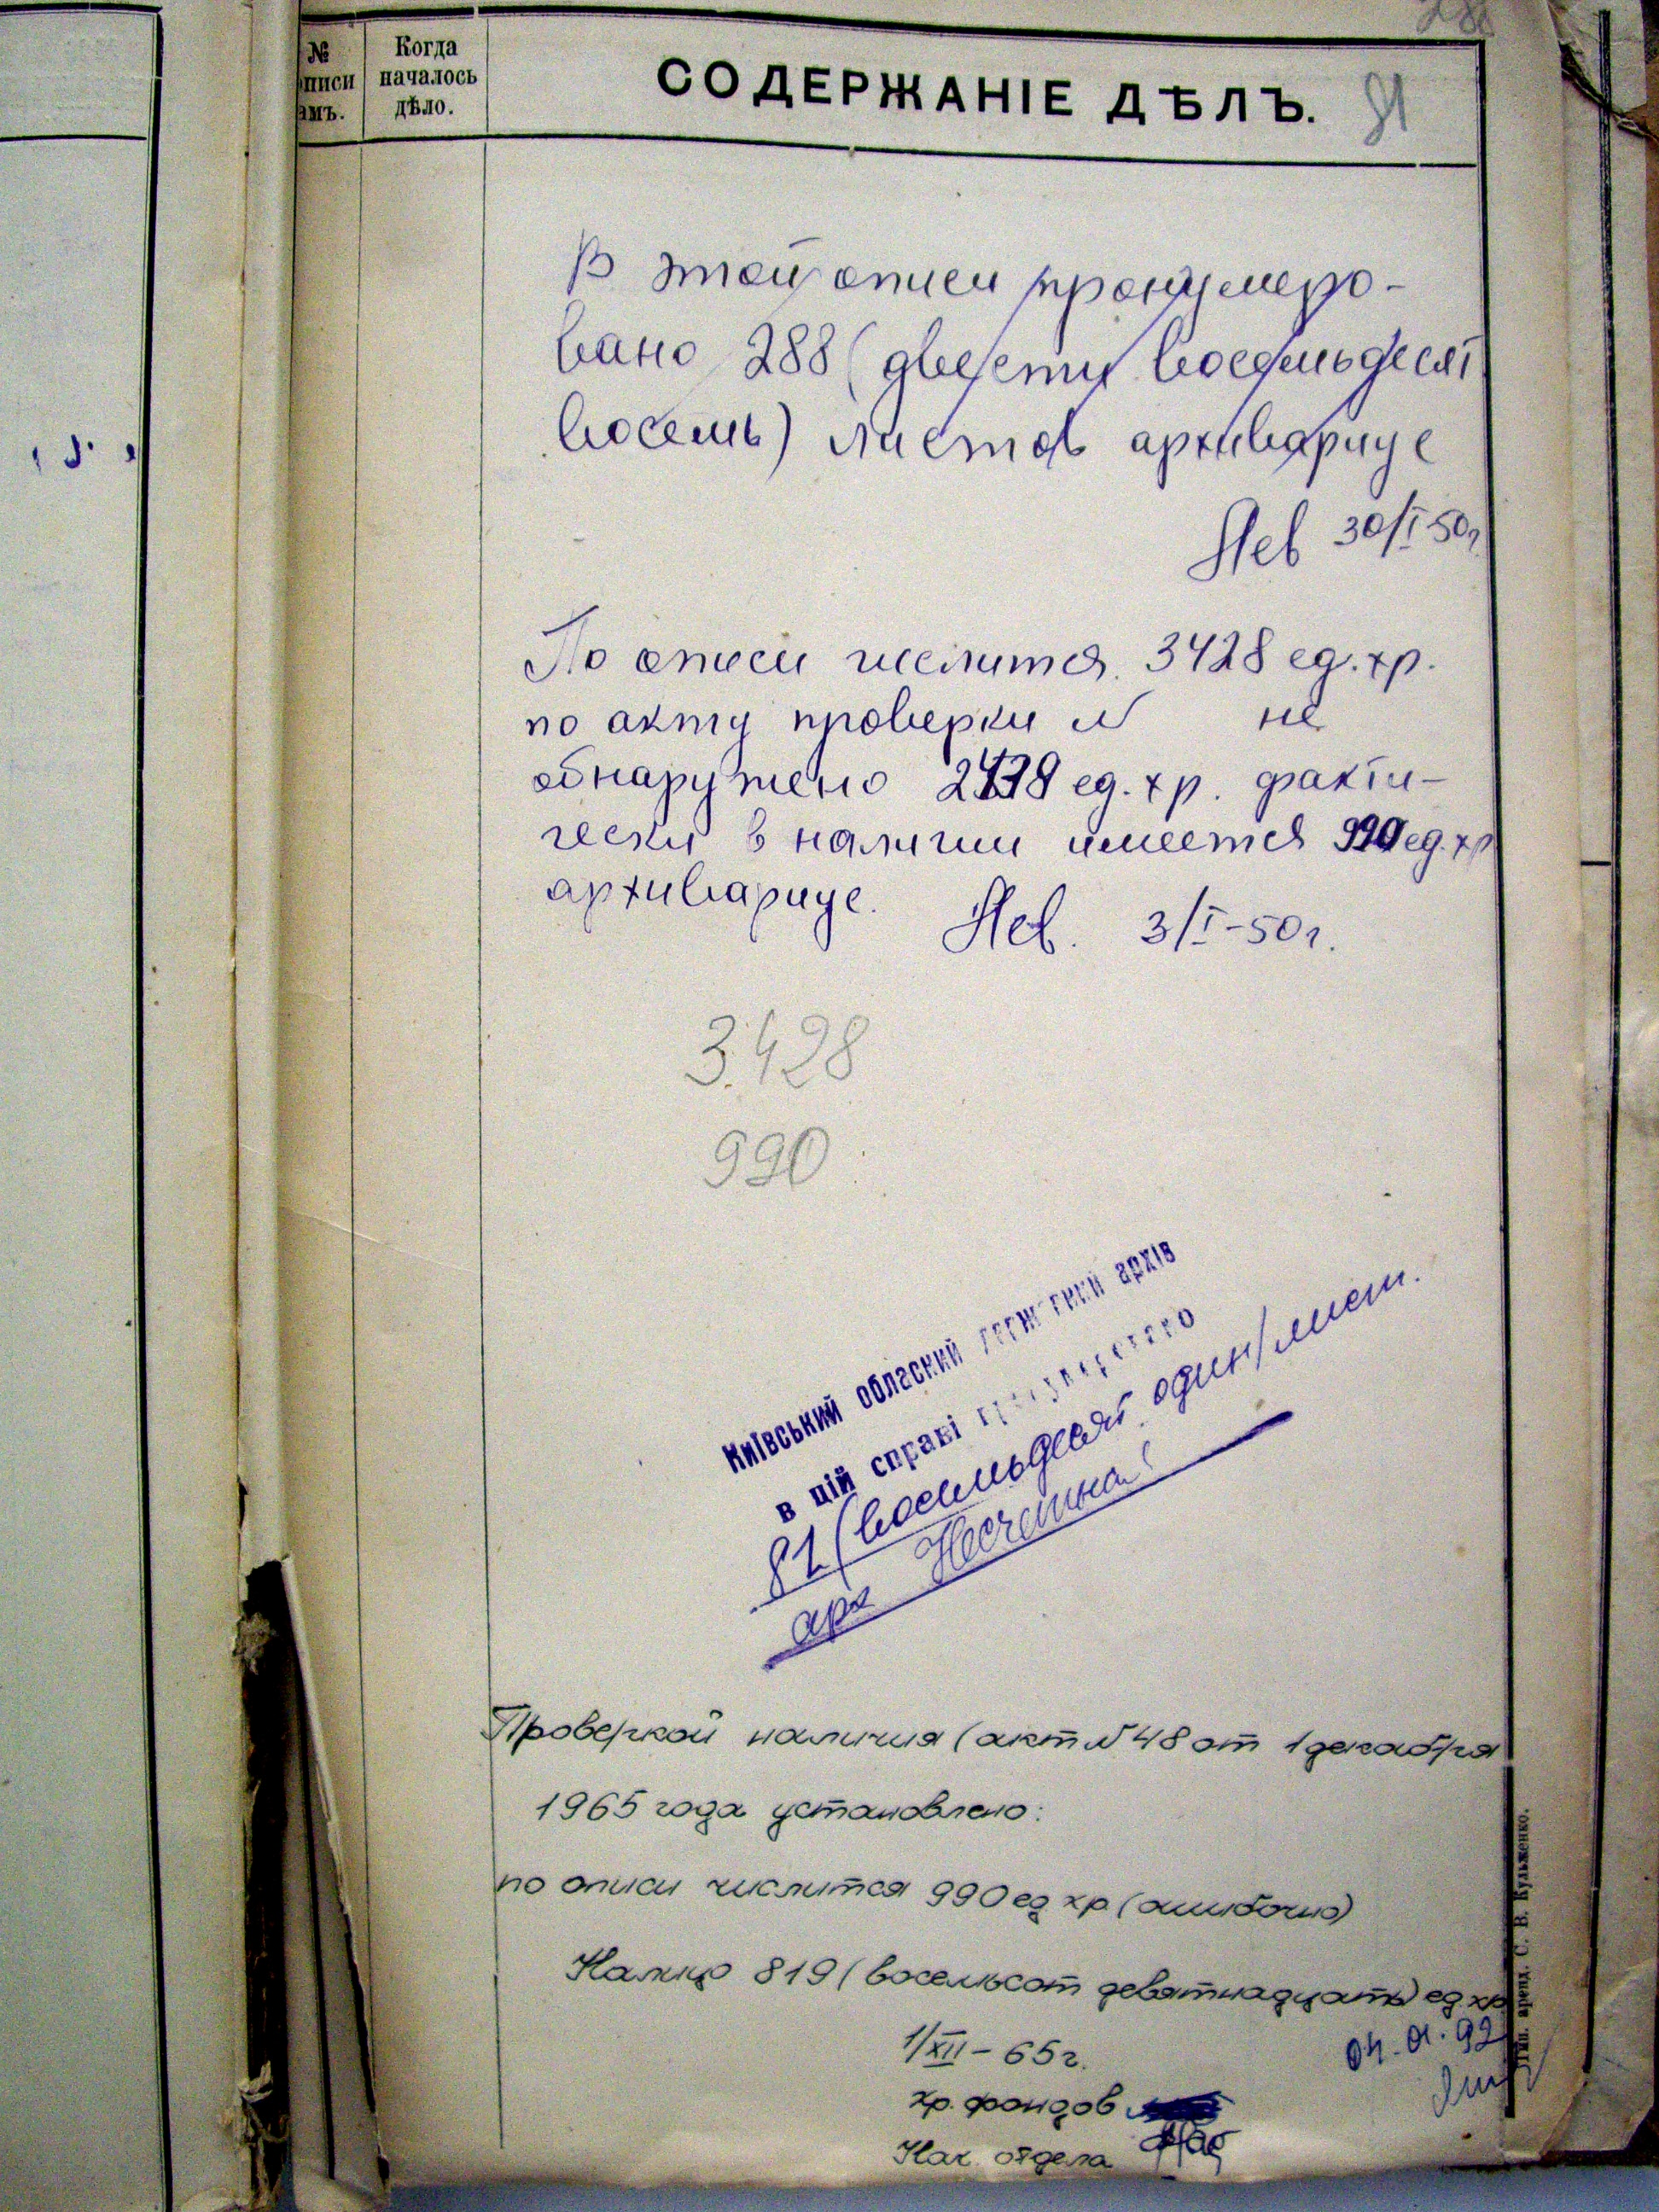 288
№
описи
амъ.
Когда
началось
дѣло.
СОДЕРЖАНІЕ ДѢЛЪ.
81
В этой описи пронумеро-
вано 288 (двести восемьдесят
восемь) листов архивариус
30/I-50г
По описи числится 3428 ед. хр.
по акту проверки N не
обнаружено 2438 ед. хр. факти-
чески в наличии имеется 990 ед. хр
архивариус. 3/I-50г.
3.428
990
Київський обласний державний архів
в цій справі пронумеровано
81 (восемьдесят один) лист.
арх
Проверкой наличия (акт N 48 от 1 декабря
1965 года установлено:
по описи числится 990 ед хр (ошибочно)
Налицо 819 (восемьсот девятнадцать) ед. хр
1/XII-65г.
04.01.92
хр. фондов
Нач. отдела
Тип. аренд. С. В. Кульженко.